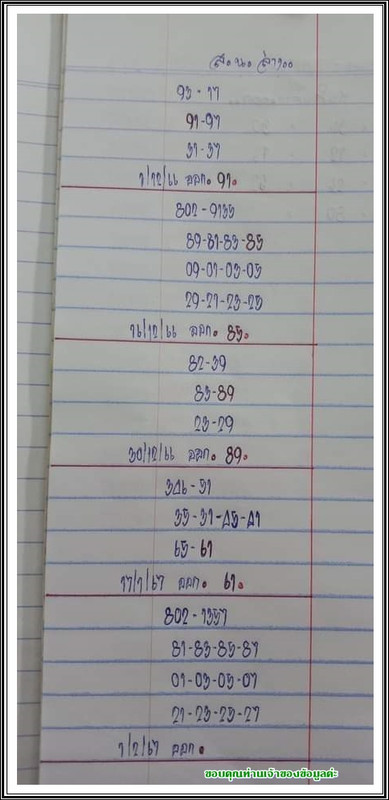 ล่าง
93-17
91-97
31-37
1/12/66 ออก. 91.
802-9135
89-81-83-85
09-01-03-05
29-21-23-25
16/12/66 ออก. 85.
82-39
83-89
23-29
30/12/66 ออก. 89.
346-51
35-31-45-41
65-61
17/1/67 ออก. 61.
802-1357
81-83-85-87
01-03-05-07
21-23-25-27
1/2/67 ออก.
ขอบคุณท่านเจ้าของข้อมูลค่ะ